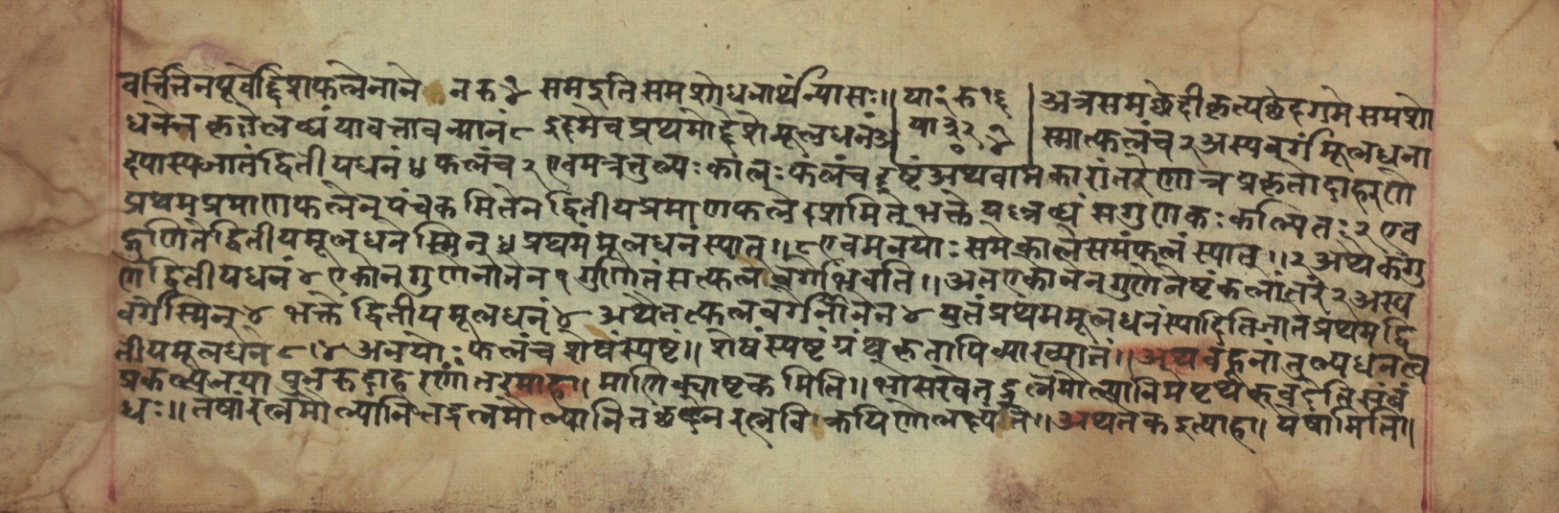 वर्त्तितेन पूर्वोद्दिशफलेनाने न रु ४ सममिति समशोधनार्थं न्यासः॥ या १ रु १६ अत्र समच्छेदीकृत्य छेदगमे समशो
धनेन कृतेलब्धं यावत्तावन्मानं ८ इदमेव प्रथमोद्देशे मूलधनं अ या ३ रु ४ स्मात्फलं च २ अस्य वर्गं मूलधना
दपास्य जातं द्वितीयधनं ४ फलं च २ एवमत्र तुल्यः कालः फलं च दृष्टं अथवा प्रकारांतरेणात्र प्रकृतोदाहरणे
प्रथमप्रमाणफलेन पंचकमितेन द्वितीयप्रमाणफले दशमिते भक्ते यल्लब्धं स गुणकः कल्पितः २ एव
द्गुणिते द्वितीयमूलधने स्मिन् ४ प्रथमं मूलधनं स्यात्॥ ८ एवमनयोः समे काले समं फलं स्यात्॥ २ अथैकगु
णं द्वितीयधनं ४ एकोनगुणेनानेन १ गुणितं सत्फलवर्गो भवति॥ अत एकोनगुणेनेष्टकलांतरे २ अस्य
वर्गेस्मिन् ४ भक्ते द्वितीयमूलधनं ४ अथैतत्फलवर्गेणानेन ४ युतं प्रथममूलधनं स्यादिति जाते प्रथमद्वि
तीयमूलधने ८।४ अनयोः फलं च शेषं स्पष्टं॥ शेषं स्पष्टं ग्रंथकृतापि व्याख्यातं॥ अथ बहूनां तुल्यधनत्व
प्रकल्पनया पुनरुदाहरणांतरमाह। माणिक्याष्टकमिति॥ भो सखे तद्रत्नमौल्यानि मे पृथक् वदेति संबं
धः॥ तेषां रत्नमौल्यानि तद्रत्नमौल्यानि तच्छब्देन रत्नविक्रयिणो लभ्यंते॥ अथ तक इत्याह। येषामिति॥